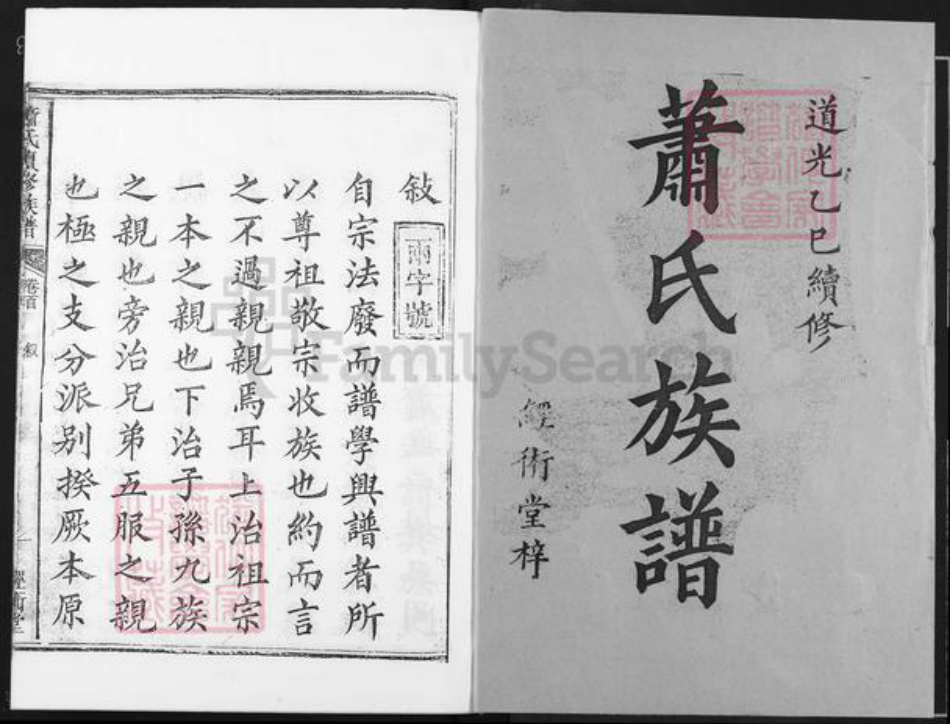 道光乙巳續修
蕭氏族譜
經術堂梓
敍
兩字號
自宗法廢而譜學興譜者所
以尊祖敬宗收族也約而言
之不過親親焉耳上治祖宗
一本之親也下治子孫九族
之親也旁治兄弟五服之親
也極之支分派別揆厥本原
蕭氏續修族譜
卷首
敘
一
經術堂
FamilySearch